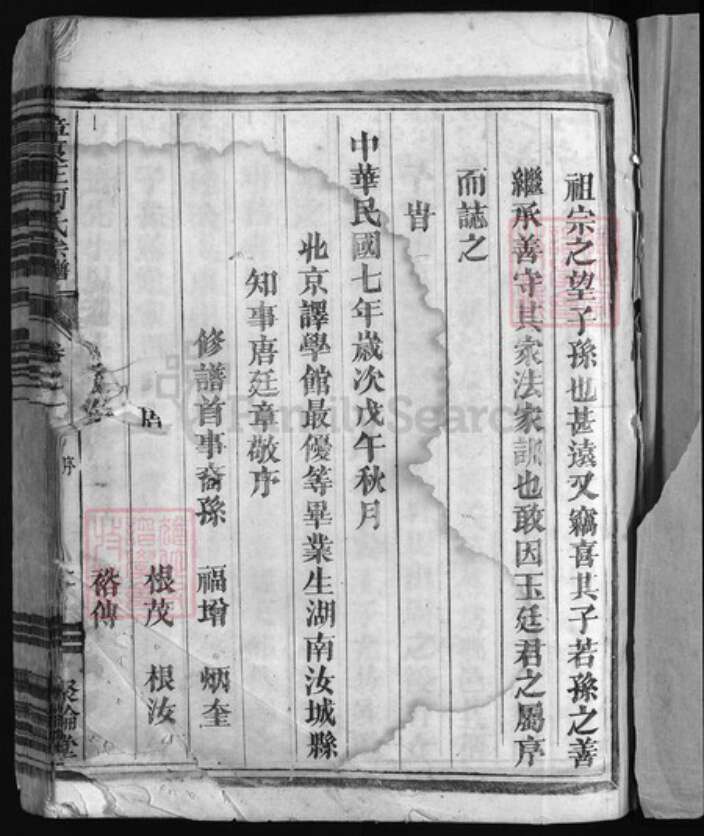 祖宗之望子孫也甚遠又竊喜其子若孫之善
繼承善守其家法家訓也敢因玉廷君之屬序
而誌之
旹
中華民國七年歲次戊午秋月
北京譯學館最優等畢業生湖南汝城縣
知事唐廷章敬序
修譜首事裔孫 福增 炳奎
根茂 根汝
裕傳
河氏宗譜
序
論堂
FamilySearch